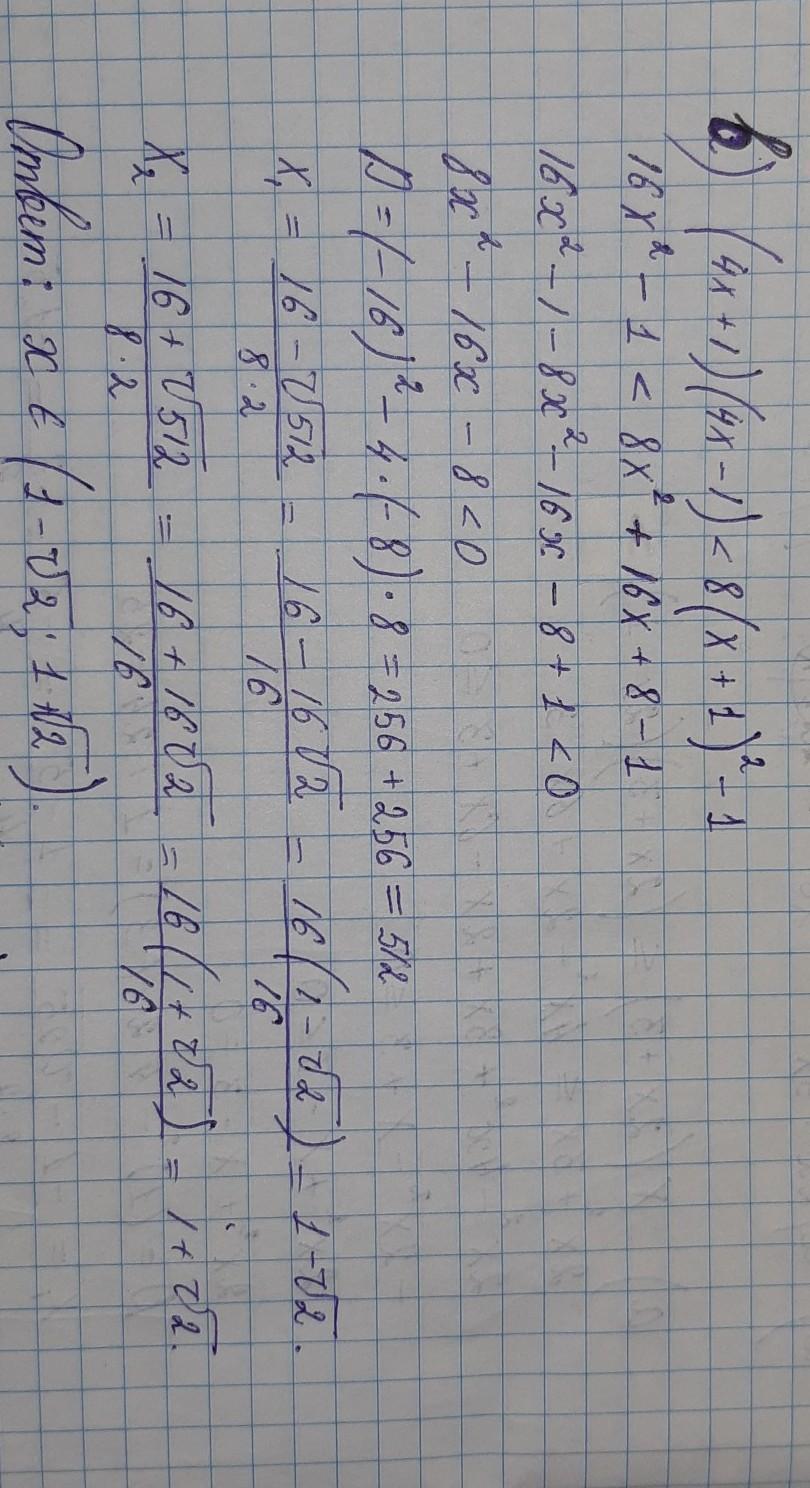 в) (4x+1)(4x-1) < 8(x+1)² - 1
16x² - 1 < 8x² + 16x + 8 - 1
16x² - 1 - 8x² - 16x - 8 + 1 < 0
8x² - 16x - 8 < 0
D = (-16)² - 4·(-8)·8 = 256 + 256 = 512
x₁ = (16 - √512)/(8·2) = (16 - 16√2)/16 = 16(1 - √2)/16 = 1 - √2.
x₂ = (16 + √512)/(8·2) = (16 + 16√2)/16 = 16(1 + √2)/16 = 1 + √2.
Ответ: x ∈ (1 - √2; 1 + √2).